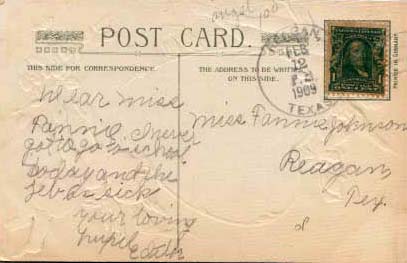 POST CARD.
THIS SIDE FOR CORRESPONDENCE.
THE ADDRESS TO BE WRITTEN
ON THIS SIDE.
FEB
12
1909
TEXAS
PRINTED IN GERMANY
Dear Miss
Fannie, I never
got to go to school
today and the
sick
your loving
pupil Edith
Miss Fannie Johnson
Reagan,
Tex.